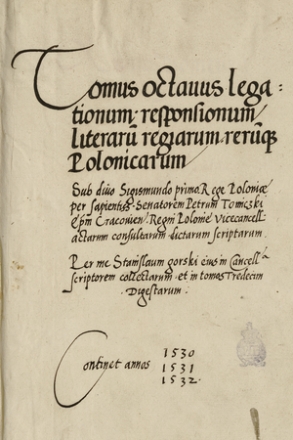 Tomus octauus lega-
tionum responsionum
literarū regiarum rerūq
Polonicarum
Sub diuo Sigismundo primo Rege Poloniæ
per sapientiss. Senatorem Petrum Tomiczki
Epm Cracovien Regni Polonie Vicecancell
actarum consultarum dictarum scriptarum
Per me Stanislaum gorski eius in Cancell
scriptorem collectarum et in tomos Tredecim
Digestarum
Continet annos 1530
1531
1532